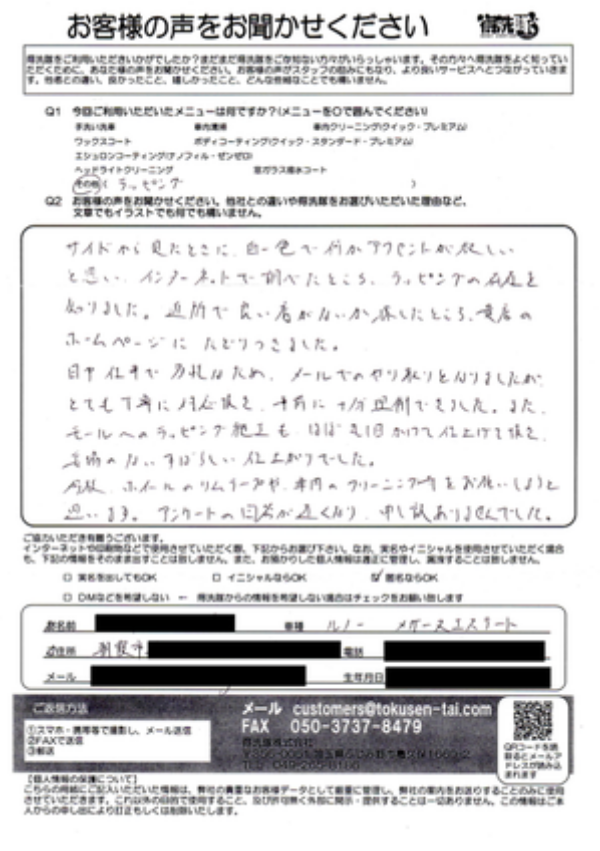 お客様の声をお聞かせください
得洗隊
得洗隊をご利用いただきいかがでしたか?まだまだ得洗隊をご存知ない方々がいらっしゃいます。その方々へ得洗隊をよく知ってい
ただくために、あなた様の声をお聞かせください。お客様の声がスタッフの励みにもなり、より良いサービスへとつながっていきま
す。他者との違い、良かったこと、嬉しかったこと、どんな些細なことでも構いません。
Q1 今回ご利用いただいたメニューは何ですか?(メニューを○で囲んでください)
手洗い洗車 車内清掃 車内クリーニング(クイック・プレミアム)
ワックスコート ボディコーティング(クイック・スタンダード・プレミアム)
エシュロンコーティング(ナノフィル・ゼンゼロ)
ヘッドライトクリーニング 窓ガラス撥水コート
その他( ラッピング )
Q2 お客様の声をお聞かせください。他社との違いや得洗隊をお選びいただいた理由など、
文章でもイラストでも何でも構いません。
サイドから見たときに、白一色で何かアクセントが欲しい
と思い、インターネットで調べたところ、ラッピングの存在を
知りました。近所で良い店がないか探したところ、貴店の
ホームページにたどりつきました。
日中仕事で多忙なため、メールでのやり取りとなりましたが、
とても丁寧に対応頂き、事前に十分理解できました。また、
モールへのラッピング施工も、ほぼ丸1日かけて仕上げて頂き、
のないすばらしい仕上がりでした。
今後、ホイールのリムラッピングや、車内のクリーニング等をお願いしようと
思います。アンケートの回答が遅くなり、申し訳ありませんでした。
ご協力いただき有難うございます。
インターネットや印刷物などで使用させていただく際、下記からお選び下さい。なお、実名やイニシャルを使用させていただく場合
も、下記の情報をそのまま出すことは致しません。また、お預かりした個人情報は適正に管理し、漏洩することは致しません。
□ 実名を出してもOK □ イニシャルならOK ☑ 匿名ならOK
□ DMなどを希望しない ← 得洗隊からの情報を希望しない場合はチェックをお願い致します
お名前 車種 ルノー メガーヌエステート
ご住所 朝霞市 電話
メール 生年月日
ご返信方法
①スマホ・携帯等で撮影し、メール送信
②FAXで送信
③郵送
メール customers@tokusen-tai.com
FAX 050-3737-8479
得洗隊株式会社
QRコードを読
取るとメールア
ドレスが読み込
まれます
【個人情報の保護について】
こちらの用紙にご記入いただいた情報は、弊社の貴重なお客様データとして厳重に管理し、弊社の案内をお送りすることのみに使用
させていただきます。これ以外の目的で使用すること、及び許可無く外部に開示・提供することは一切ありません。この情報はご本
人からの申し出により訂正もしくは削除いたします。